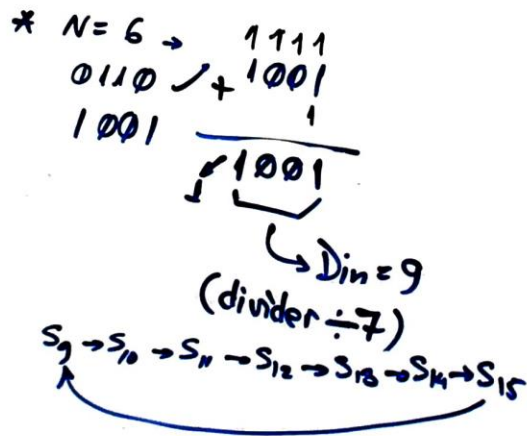 * N= 6 → 1111
0110 + 1001
1001 1
1 1001
Din = 9
(divider ÷7)
S9 → S10 → S11 → S12 → S13 → S14 → S15